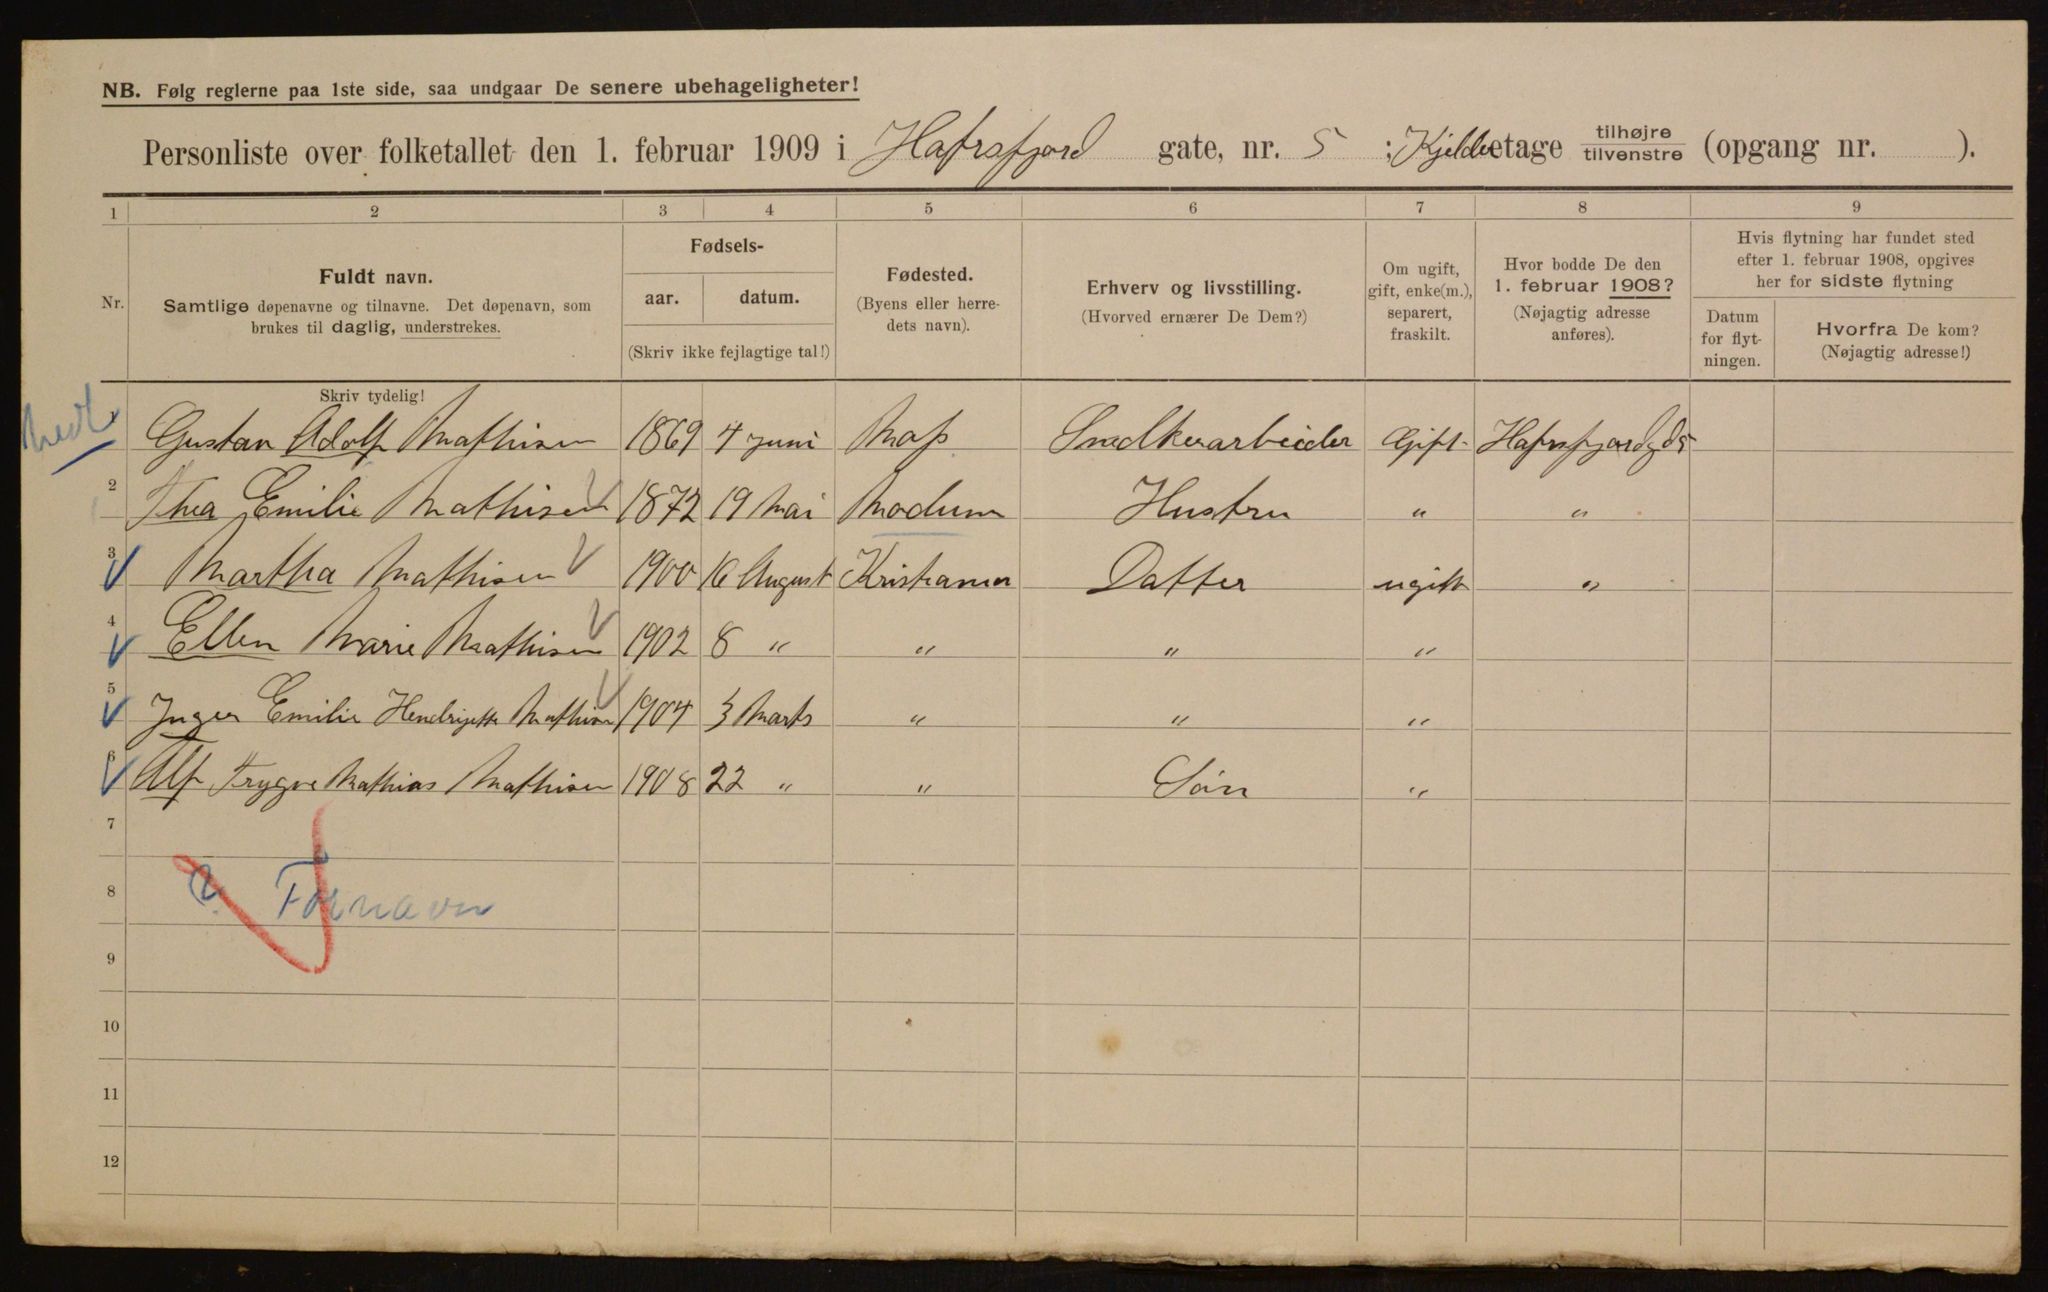 NB. Følg reglerne paa 1ste side, saa undgaar De senere ubehageligheter!
Personliste over folketallet den 1. februar 1909 i Hafrsfjord gate, nr. 5 ; Kjelder etage tilhøjre tilvenstre (opgang nr. ).
1 2 3 4 5 6 7 8 9
Nr.
Fuldt navn.
Samtlige døpenavne og tilnavne. Det døpenavn, som
brukes til daglig, understrekes.
Skriv tydelig!
Fødsels-
aar. datum.
(Skriv ikke fejlagtige tal!)
Fødested.
(Byens eller herre-
dets navn).
Erhverv og livsstilling.
(Hvorved ernærer De Dem?)
Om ugift,
gift, enke(m.),
separert,
fraskilt.
Hvor bodde De den
1. februar 1908?
(Nøjagtig adresse
anføres).
Hvis flytning har fundet sted
efter 1. februar 1908, opgives
her for sidste flytning
Datum
for flyt-
ningen.
Hvorfra De kom?
(Nøjagtig adresse!)
1 Gustav Adolf Mathisen 1869 4 juni Moss Snedkerarbeider Gift Hafrsfjordgd 5
2 Thea Emilie Mathisen 1872 19 Mai Modum Hustru " "
3 Martha Mathisen 1900 16 August Kristiania Datter ugift "
4 Ellen Marie Mathisen 1902 8 " " " "
5 Inger Emilie Hendrijette Mathisen 1904 3 Marts " " "
6 Alf Trygve Mathias Mathisen 1908 22 " " Søn "
7
8 Fornavn
9
10
11
12